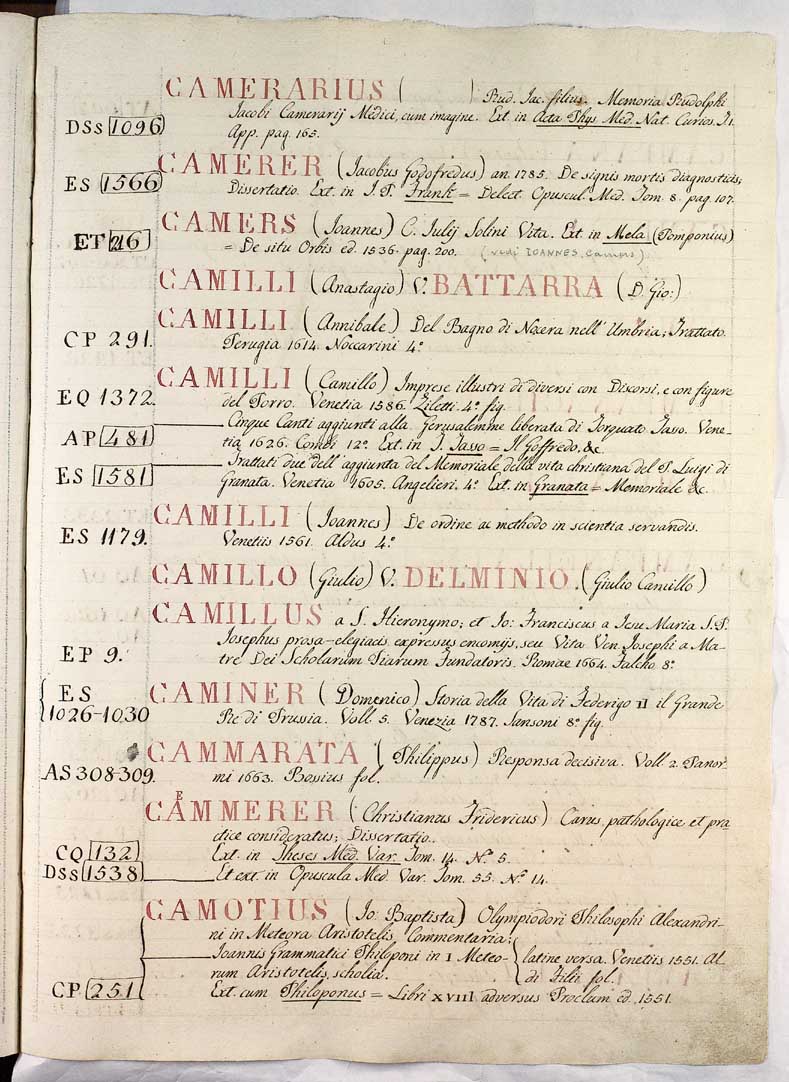 CAMERARIUS ( ) Rud. Jac. filius. Memoria Rudolphi
Jacobi Camerarij Medici, cum imagine. Ext. in Acta Phys. Med. Nat. Curios. T1.
DSs 1096
App. pag. 165.
CAMERER (Jacobus Godofredus) an. 1785. De signis mortis diagnosticis;
ES 1566
Dissertatio. Ext. in J. P. Frank = Delect. Opuscul. Med. Tom. 8. pag. 107.
CAMERS (Joannes) C. Julij Solini Vita. Ext. in Mela (Pomponius)
ET 216
= De situ Orbis ed. 1536. pag. 200. (vedi IOANNES, Camers)
CAMILLI (Anastagio) V. BATTARRA (D. Gio:)
CAMILLI (Annibale) Del Bagno di Nocera nell' Umbria; Trattato.
CP 291.
Perugia 1614. Noccarini 4º
CAMILLI (Camillo) Imprese illustri di diversi con Discorsi, e con figure
EQ 1372.
del Porro. Venetia 1586. Ziletti. 4º fig.
Cinque Canti aggiunti alla Gerusalemme liberata di Torquato Tasso. Vene-
AP 481
tia 1626. Combi 12º. Ext. in T. Tasso = Il Goffredo. &c.
Trattati due dell' aggiunta del Memoriale della vita christiana del P. Luigi di
ES 1581
Granata. Venetia 1605. Angelieri. 4º Ext. in Granata = Memoriale &c.
CAMILLI (Joannes) De ordine ac methodo in scientia servandis.
ES 1179.
Venetiis 1561. Aldus 4º
CAMILLO (Giulio) V. DELMINIO (Giulio Camillo)
CAMILLUS a S. Hieronymo; et Jo: Franciscus a Jesu Maria S. P.
Josephus prosa-elegiacis expressus encomijs, seu Vita Ven Josephi a Ma-
EP 9.
tre Dei Scholarum Piarum Fundatoris. Romae 1664. Falcho 8º
CAMINER (Domenico) Storia della Vita di Federigo II il Grande
ES 1026-1030
Re di Prussia. Voll 5. Venezia 1787. Sansoni 8º fig.
CAMMARATA (Philippus) Responsa decisiva. Voll 2. Panor-
AS 308-309.
mi 1663. Bossius fol.
CAEMMERER (Christianus Fridericus) Carus pathologice et pra
ctice consideratus; Dissertatio.
CQ 132
Ext. in Theses Med. Var. Tom. 14. Nº 5.
DSs 1538
Et ext. in Opuscula Med. Var. Tom. 55. Nº 14.
CAMOTIUS (Jo: Baptista) Olympiodori Philosophi Alexandri-
ni in Meteora Aristotelis, Commentaria;
Joannis Grammatici Philoponi in I Meteo-
rum Aristotelis, scholia.
latine versa. Venetiis 1551. Al
di Filii fol.
CP 251
Ext. cum Philoponus = Libri XVIII adversus Proclum ed. 1551.